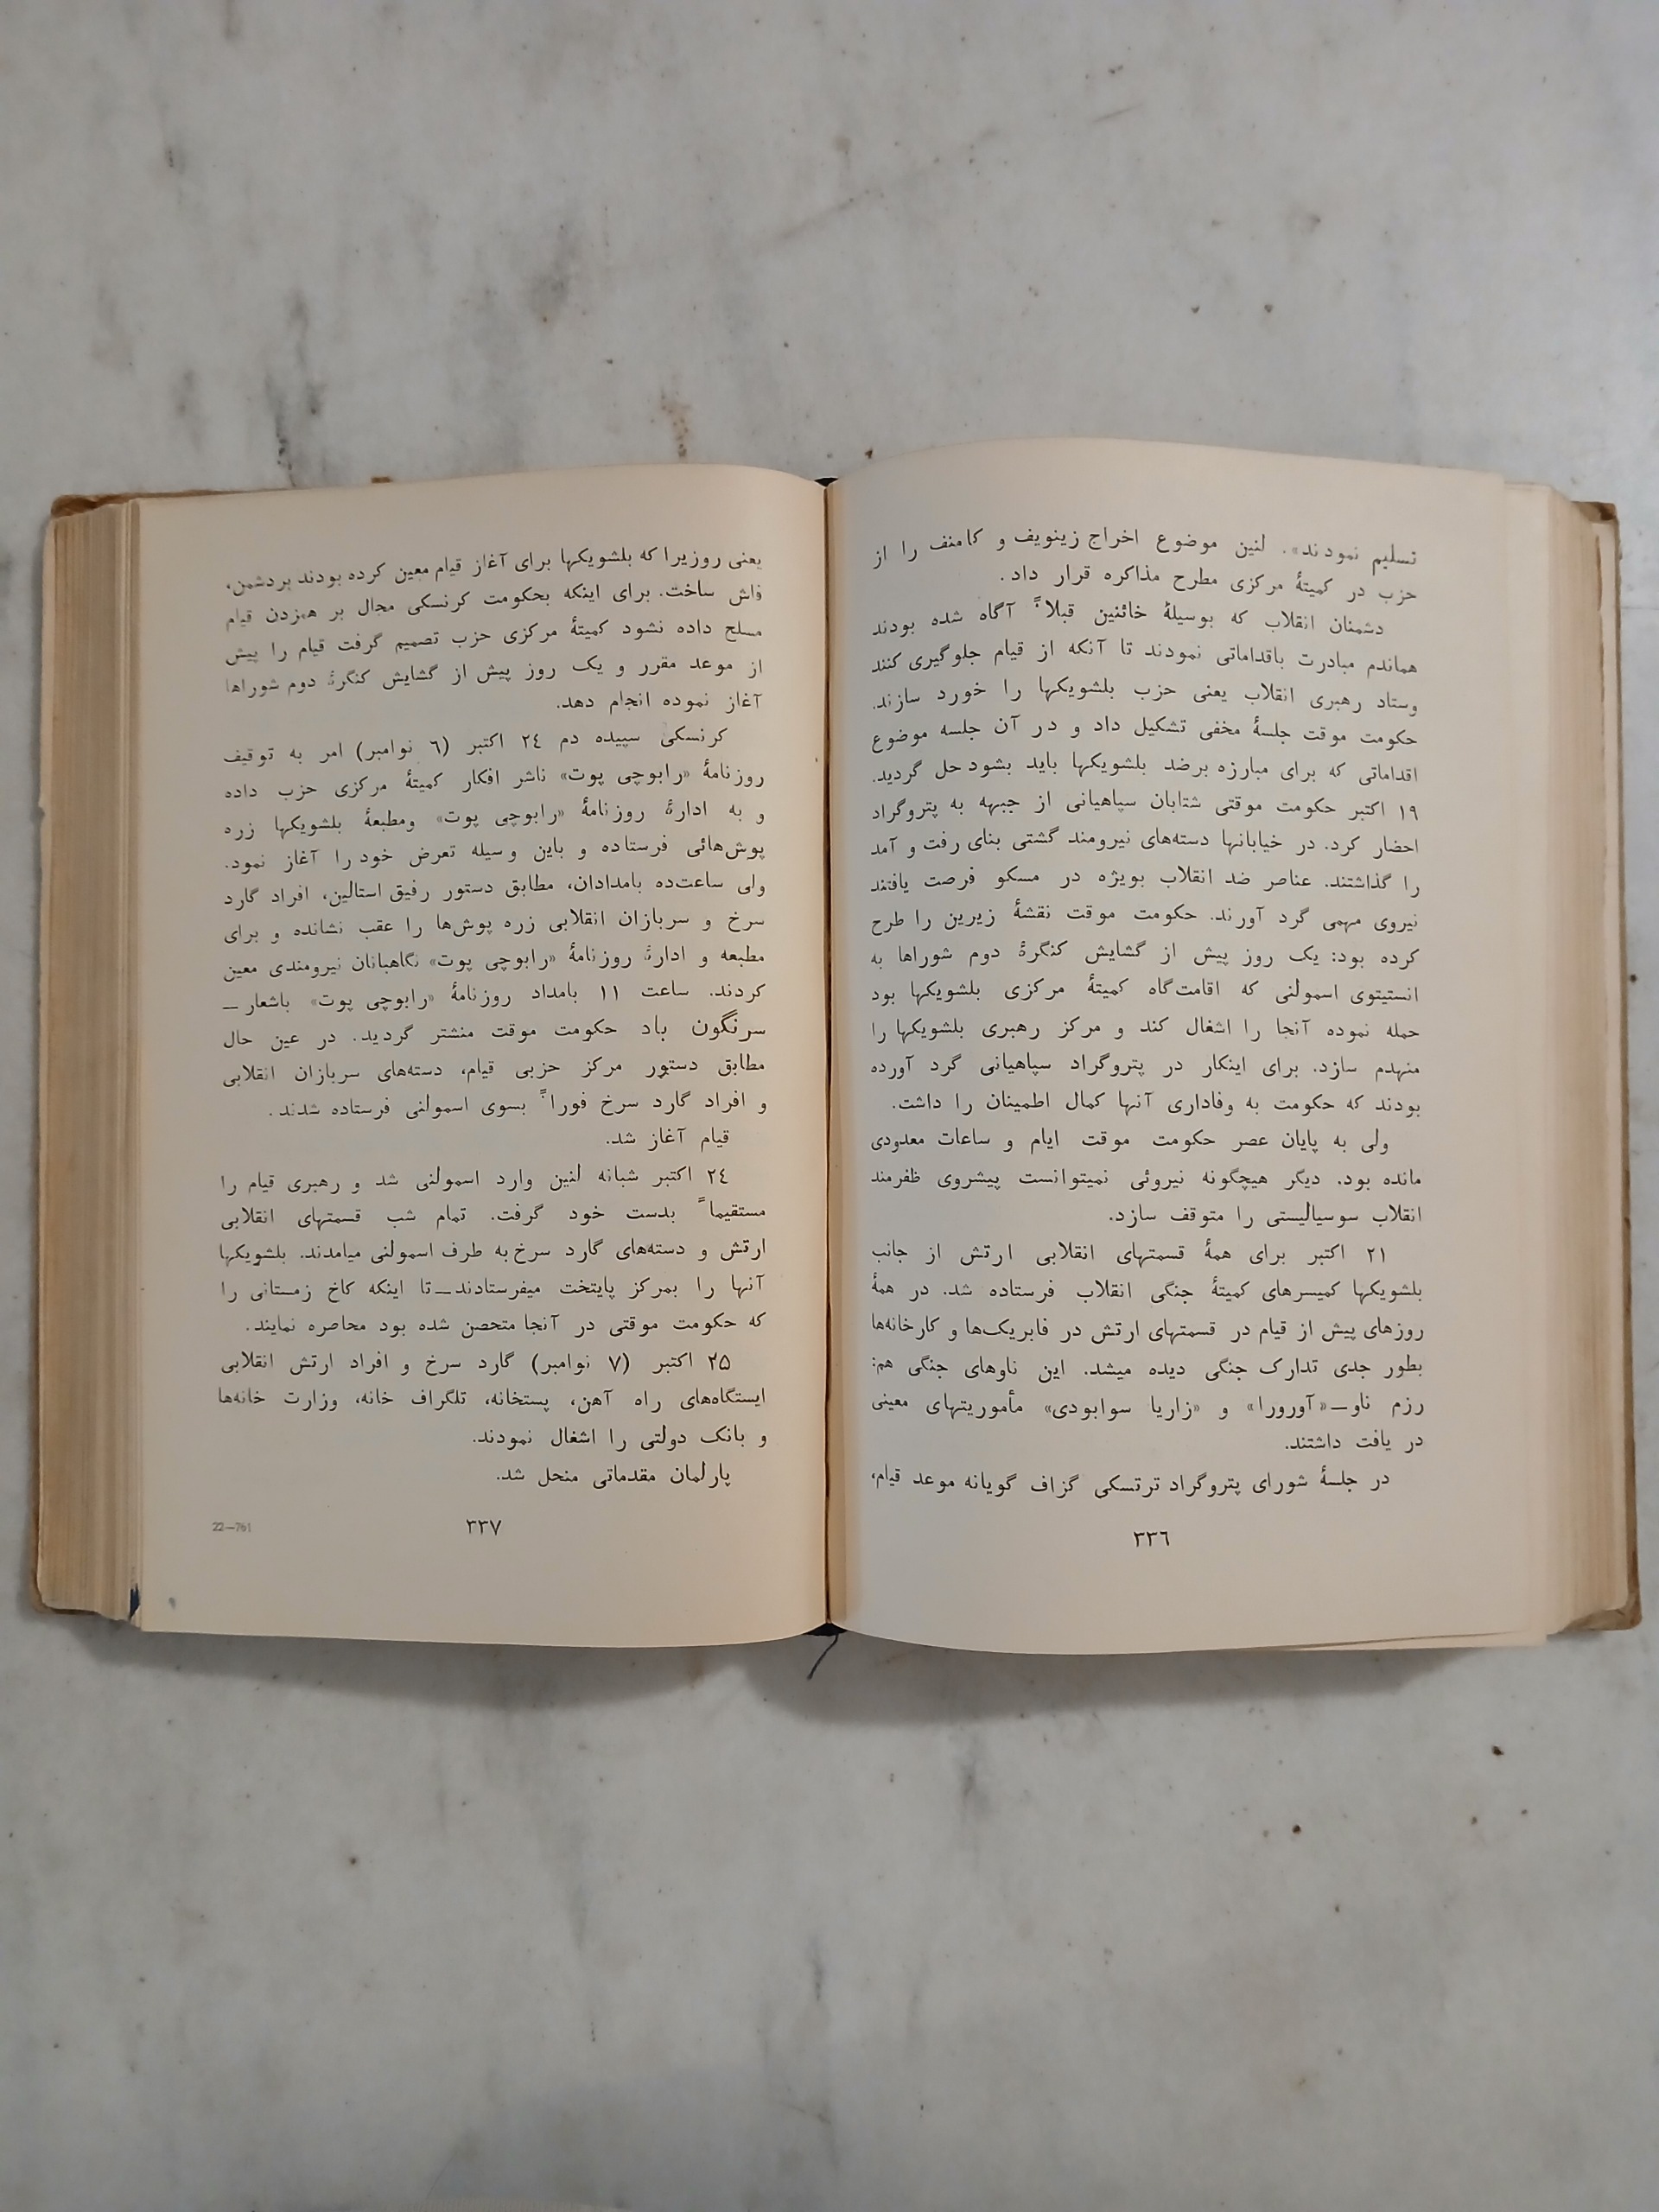 تسلیم نمودند». لنین موضوع اخراج زینویف و کامنف را از
حزب در کمیتهٔ مرکزی مطرح مذاکره قرار داد.
دشمنان انقلاب که بوسیلهٔ خائنین قبلاً آگاه شده بودند
هماندم مبادرت باقداماتی نمودند تا آنکه از قیام جلوگیری کنند
وستاد رهبری انقلاب یعنی حزب بلشویکها را خورد سازند.
حکومت موقت جلسهٔ مخفی تشکیل داد و در آن جلسه موضوع
اقداماتی که برای مبارزه برضد بلشویکها باید بشود حل گردید.
۱۹ اکتبر حکومت موقتی شتابان سپاهیانی از جبهه به پتروگراد
احضار کرد. در خیابانها دسته‌های نیرومند گشتی بنای رفت و آمد
را گذاشتند. عناصر ضد انقلاب بویژه در مسکو فرصت یافتند
نیروی مهمی گرد آورند. حکومت موقت نقشهٔ زیرین را طرح
کرده بود: یک روز پیش از گشایش کنگرهٔ دوم شوراها به
انستیتوی اسمولنی که اقامت‌گاه کمیتهٔ مرکزی بلشویکها بود
حمله نموده آنجا را اشغال کند و مرکز رهبری بلشویکها را
منهدم سازد. برای اینکار در پتروگراد سپاهیانی گرد آورده
بودند که حکومت به وفاداری آنها کمال اطمینان را داشت.
ولی به پایان عصر حکومت موقت ایام و ساعات معدودی
مانده بود. دیگر هیچگونه نیروئی نمیتوانست پیشروی ظفرمند
انقلاب سوسیالیستی را متوقف سازد.
۲۱ اکتبر برای همهٔ قسمتهای انقلابی ارتش از جانب
بلشویکها کمیسرهای کمیتهٔ جنگی انقلاب فرستاده شد. در همهٔ
روزهای پیش از قیام در قسمتهای ارتش در فابریک‌ها و کارخانه‌ها
بطور جدی تدارک جنگی دیده میشد. این ناوهای جنگی هم:
رزم ناو—«آورورا» و «زاریا سوابودی» مأموریتهای معینی
در یافت داشتند.
در جلسهٔ شورای پتروگراد ترتسکی گزاف گویانه موعد قیام،
۳۳٦
یعنی روزیرا که بلشویکها برای آغاز قیام معین کرده بودند بردشمن،
فاش ساخت. برای اینکه بحکومت کرنسکی مجال بر همزدن قیام
مسلح داده نشود کمیتهٔ مرکزی حزب تصمیم گرفت قیام را پیش
از موعد مقرر و یک روز پیش از گشایش کنگرهٔ دوم شوراها
آغاز نموده انجام دهد.
کرنسکی سپیده دم ۲٤ اکتبر (٦ نوامبر) امر به توقیف
روزنامهٔ «رابوچی پوت» ناشر افکار کمیتهٔ مرکزی حزب داده
و به ادارهٔ روزنامهٔ «رابوچی پوت» ومطبعهٔ بلشویکها زره
پوش‌هائی فرستاده و باین وسیله تعرض خود را آغاز نمود.
ولی ساعت‌ده بامدادان، مطابق دستور رفیق استالین، افراد گارد
سرخ و سربازان انقلابی زره پوش‌ها را عقب نشانده و برای
مطبعه و ادارهٔ روزنامهٔ «رابوچی پوت» نگاهبانان نیرومندی معین
کردند. ساعت ۱۱ بامداد روزنامهٔ «رابوچی پوت» باشعار —
سرنگون باد حکومت موقت منشتر گردید. در عین حال
مطابق دستور مرکز حزبی قیام، دسته‌های سربازان انقلابی
و افراد گارد سرخ فوراً بسوی اسمولنی فرستاده شدند.
قیام آغاز شد.
۲٤ اکتبر شبانه لنین وارد اسمولنی شد و رهبری قیام را
مستقیماً بدست خود گرفت. تمام شب قسمتهای انقلابی
ارتش و دسته‌های گارد سرخ به طرف اسمولنی میامدند. بلشویکها
آنها را بمرکز پایتخت میفرستادند—تا اینکه کاخ زمستانی را
که حکومت موقتی در آنجا متحصن شده بود محاصره نمایند.
۲۵ اکتبر (۷ نوامبر) گارد سرخ و افراد ارتش انقلابی
ایستگاه‌های راه آهن، پستخانه، تلگراف خانه، وزارت خانه‌ها
و بانک دولتی را اشغال نمودند.
پارلمان مقدماتی منحل شد.
۳۳۷
22—761